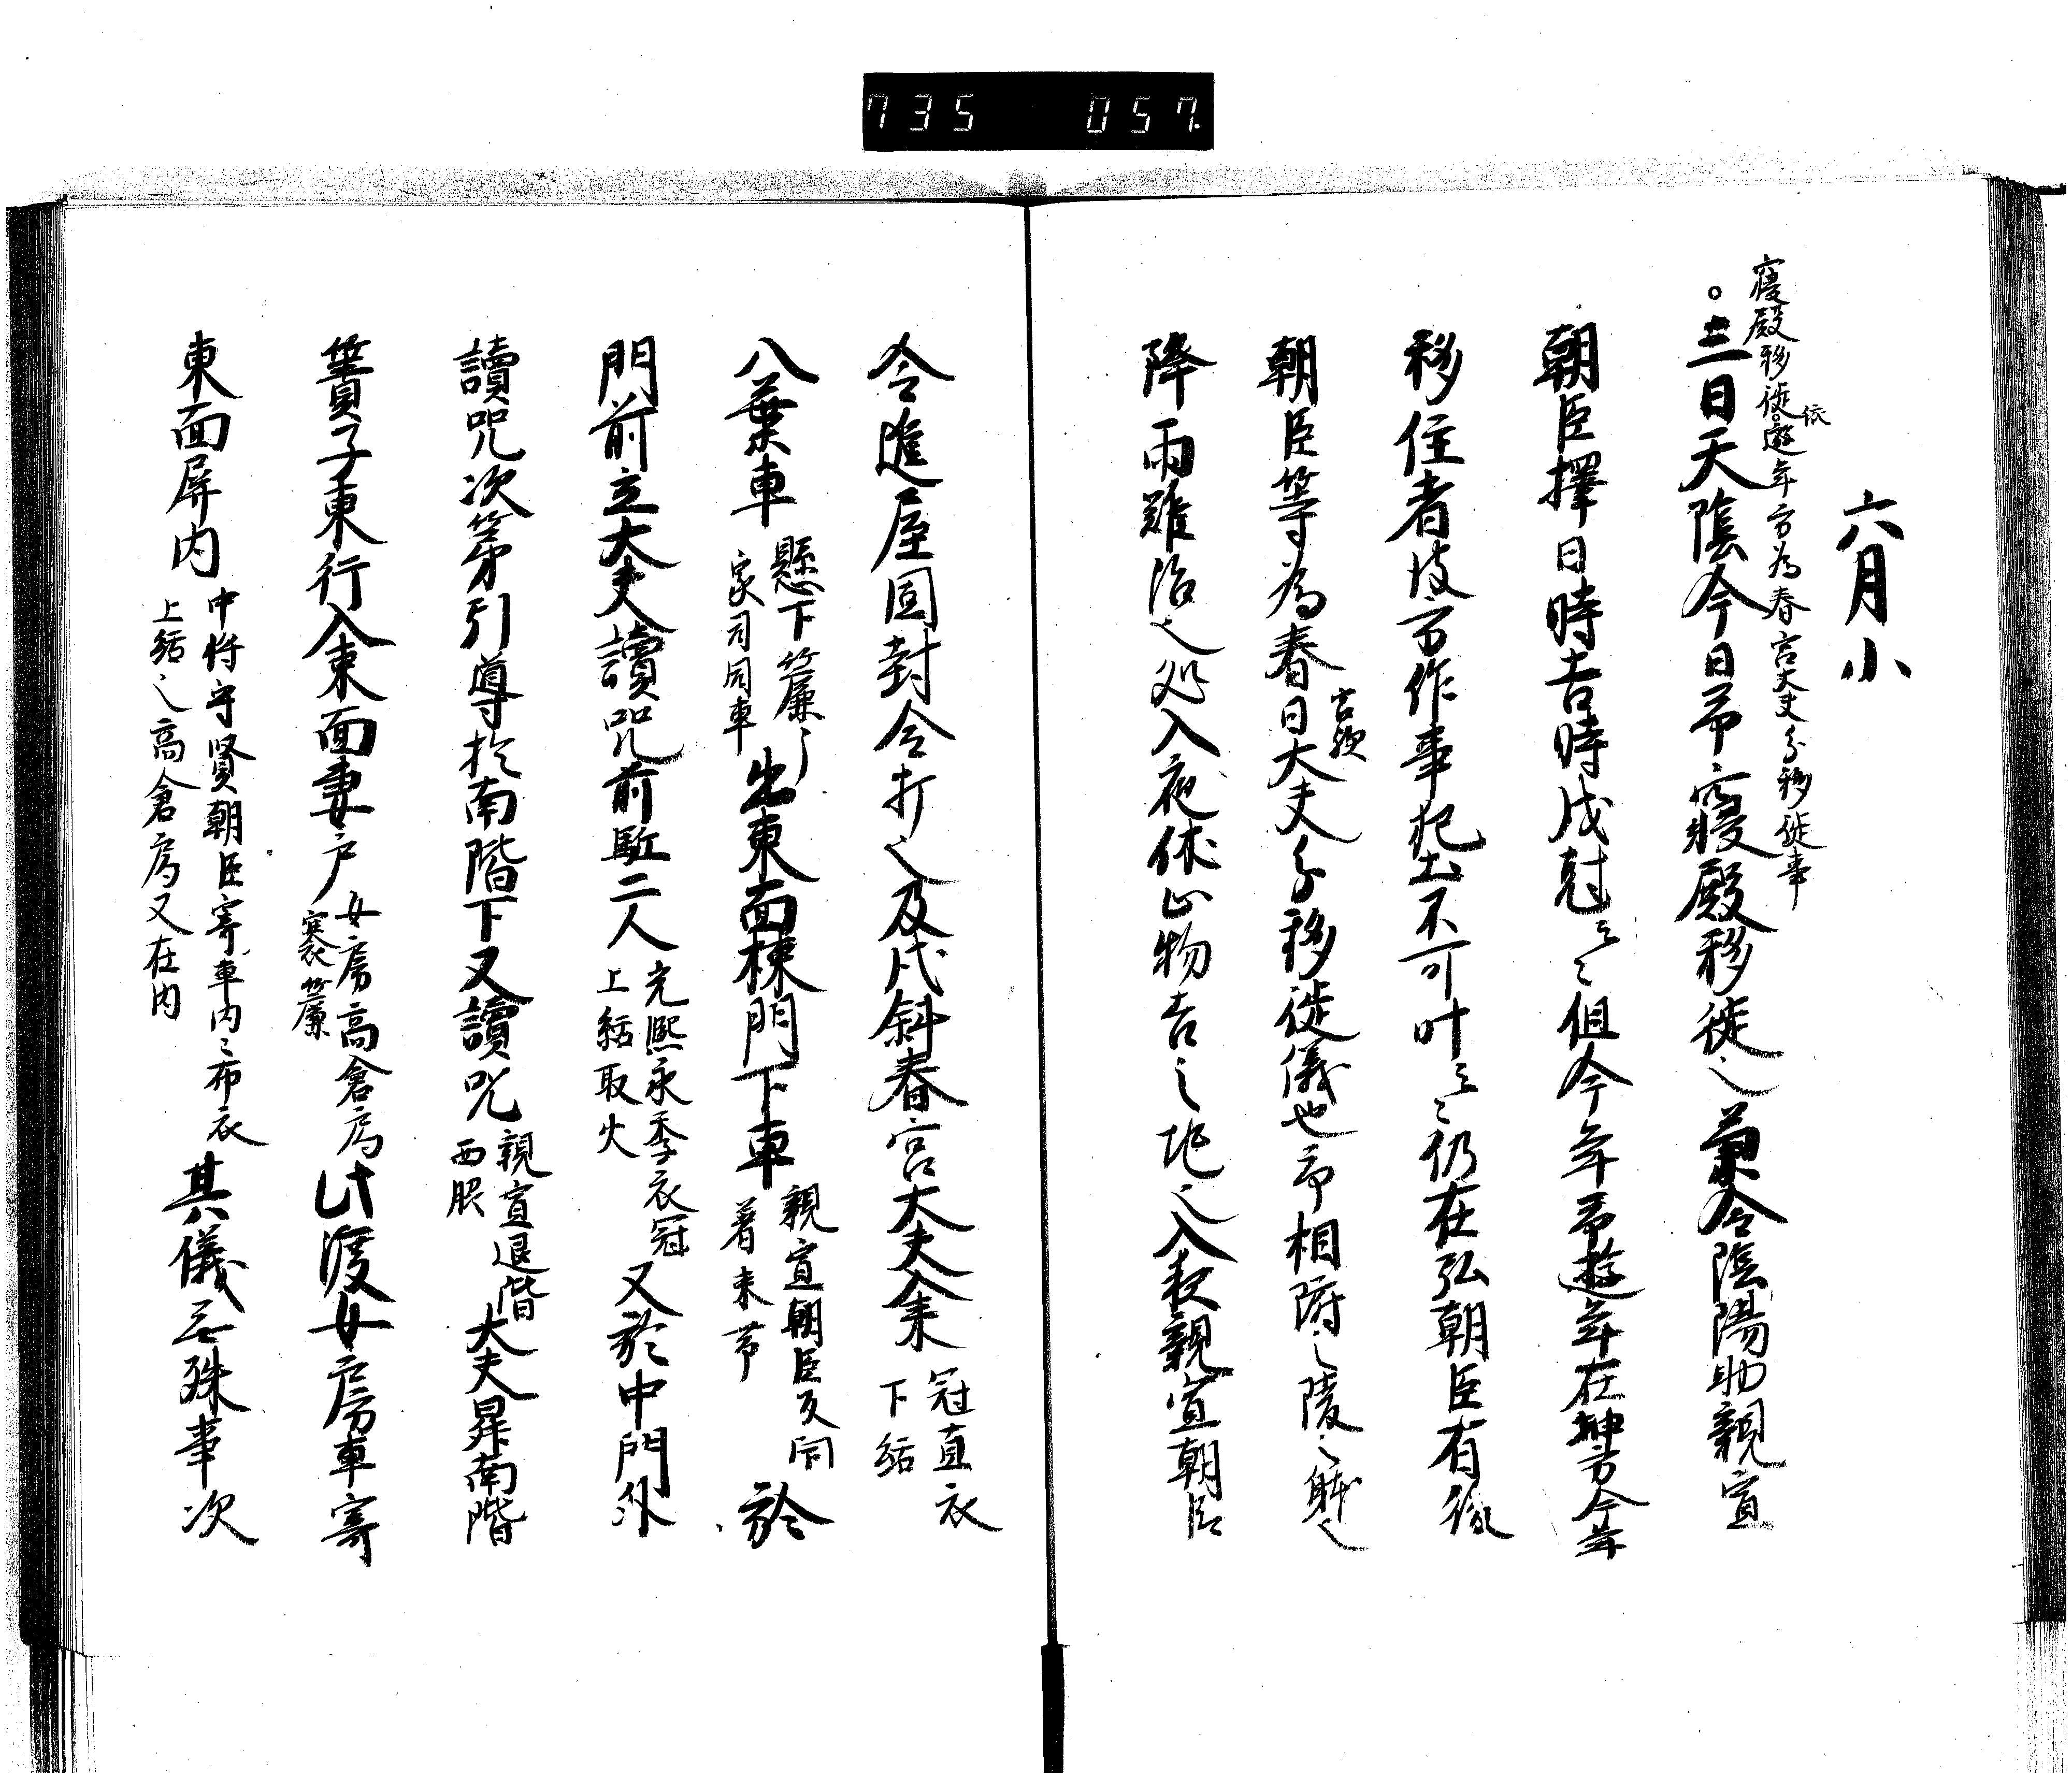 735 057.
六月小
寝殿移徙依遊年方為春宮大夫分移徙事
。三日天陰今日予寝殿移徙之兼令陰陽助親宣
朝臣擇日時吉時戌尅云々但今年予遊年在坤方今年
移住者彼方作事犯土不可叶云々仍在弘朝臣有
朝臣等為春日大夫分移徙儀也予相府之
宮歟
降雨難治之処入夜休止物吉之地之入夜親宣朝臣
令進屋固封令打之及戌斜春宮大夫入来冠直衣下結
八葉車懸下簾之家司同車出東面棟門下車親宣朝臣又同着束帯於
門前立大夫讀咒前駈二人光熈永季衣冠上結取火又於中門外
讀咒次第引導於南階下又讀咒親宣退階西脇大夫昇南階
簀子東行入東面妻戸女房高倉局褰簾此後女房車寄
東面屏内中将守賢朝臣寄車内々布衣上結之高倉局又在内其儀無殊事次